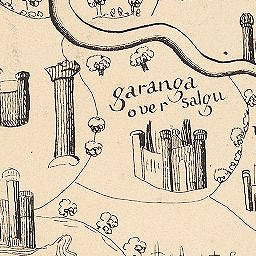 garanga
over salgu